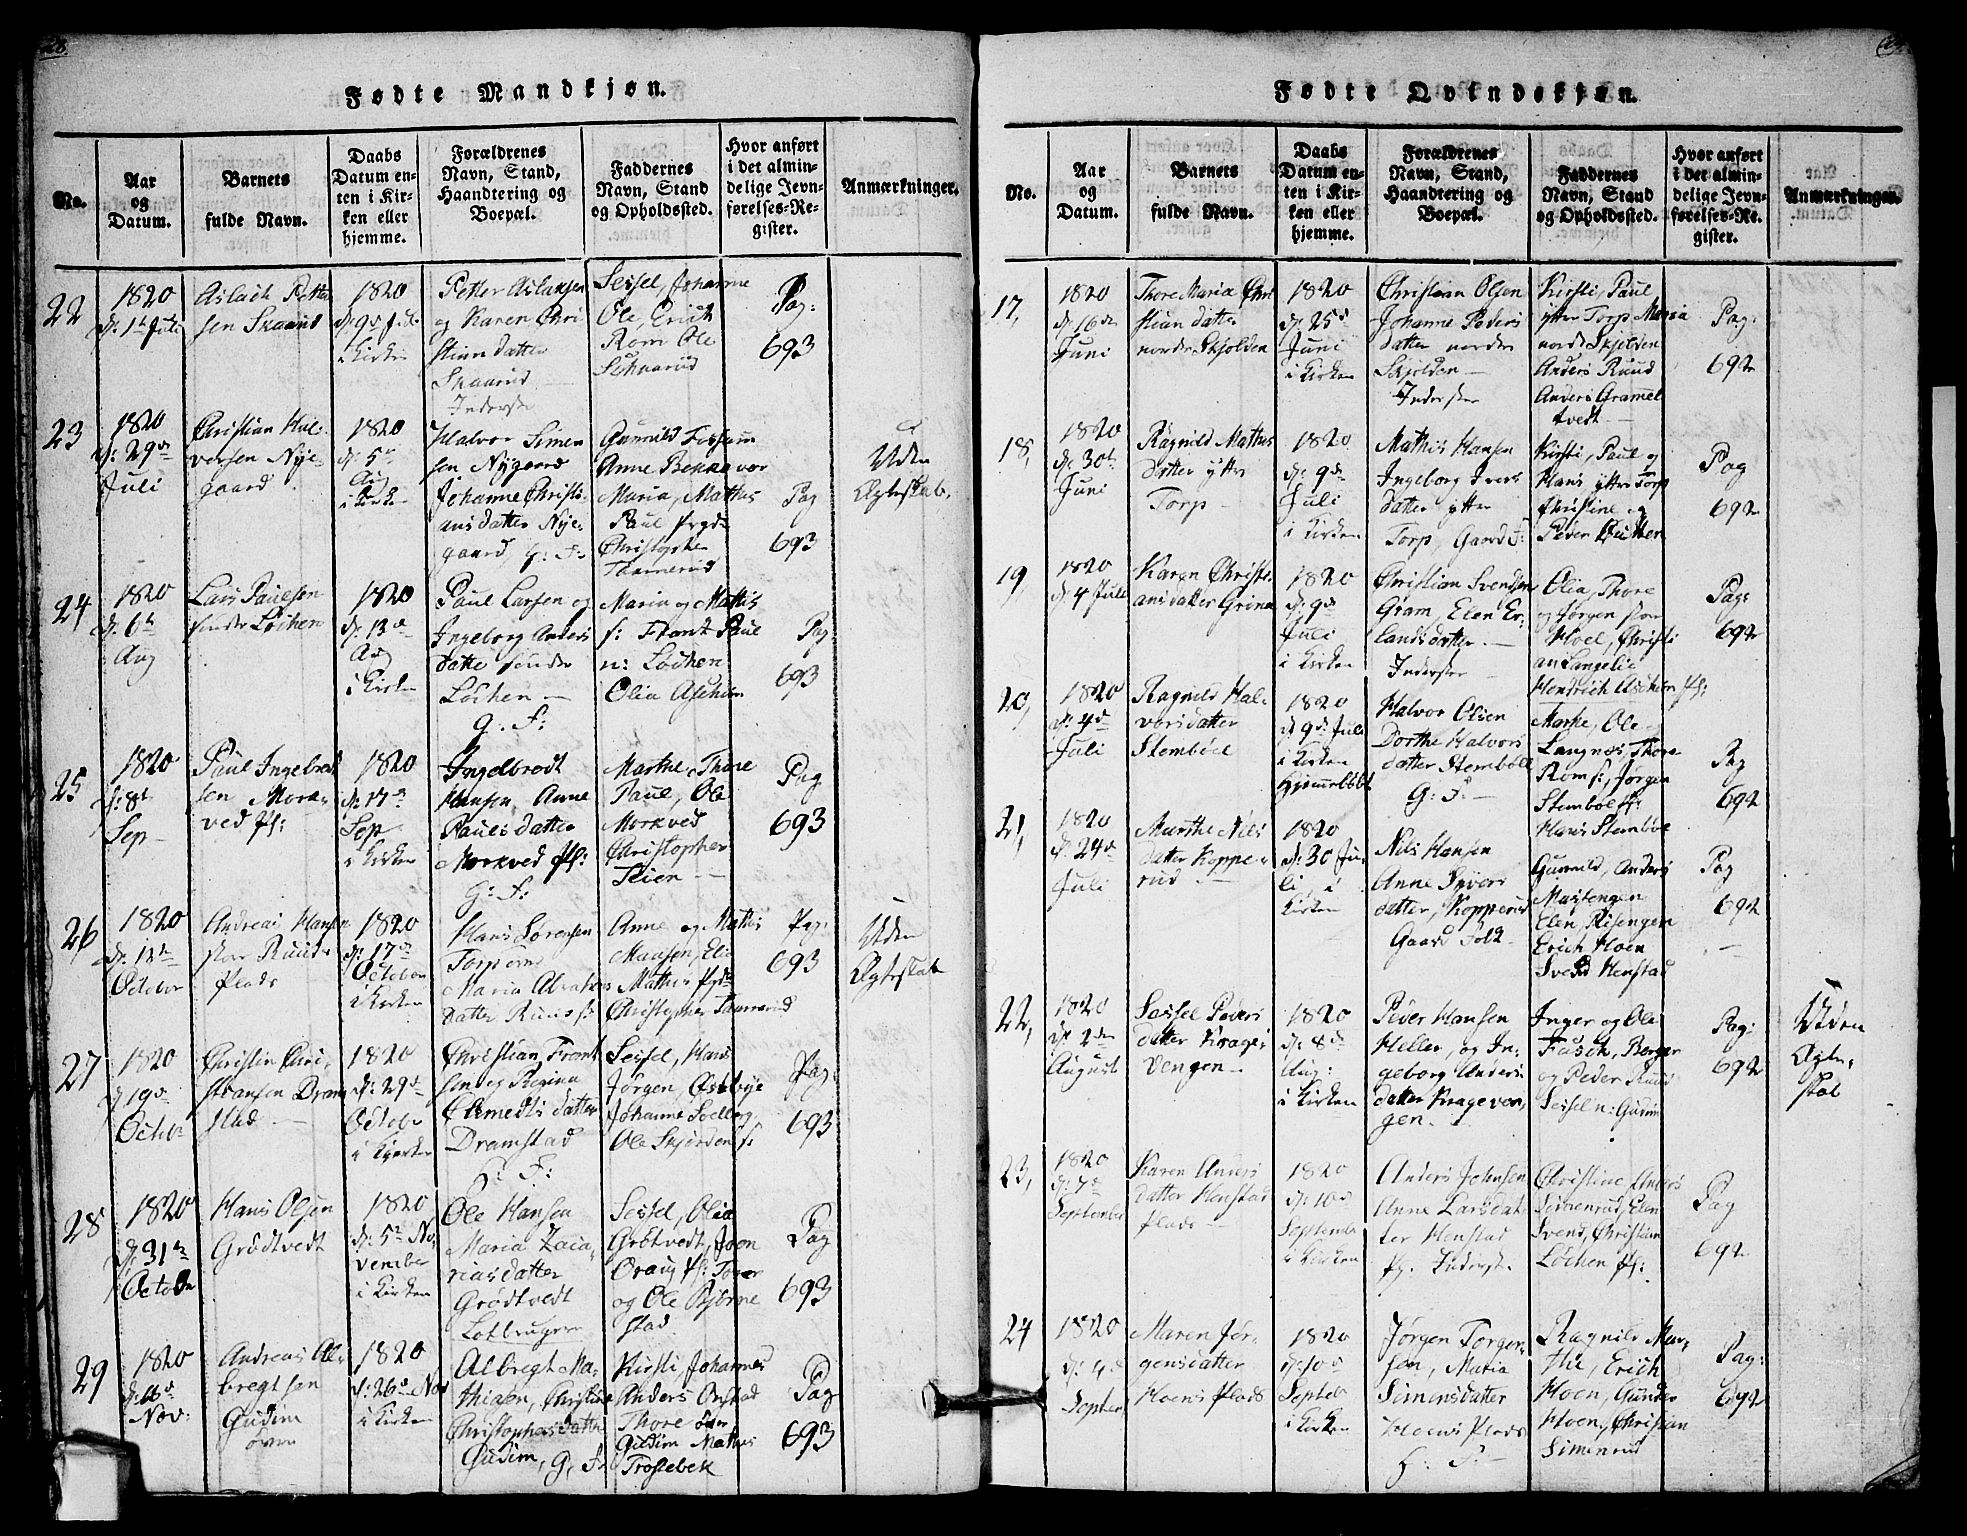 28.
Fødte Mandkjøn.
No.
Aar
og
Datum.
Barnets
fulde Navn.
Daabs
Datum en-
ten i Kir-
ken eller
hjemme.
Forældrenes
Navn, Stand,
Haandtering og
Boepæl.
Faddernes
Navn, Stand
og Opholdssted.
Hvor anført
i det almin-
delige Jevn-
førelses-Re-
gister.
Anmærkninger.
22
1820
d: 1t Juli
Aslach Petter
sen Skaarud
1820
d: 9d Juli
i Kirken
Petter Aslaksen
og Karen Chri
stiansdatter
Skaarud
Inderste
Sessel, Johanne
Ole, Erich
Rom Ole
Pag:
693
23
1820
d: 29d
Juli
Christian Hal-
vorsen Nye-
gaard
1820
d: 5d
Aug
i Kirken
Halvor Simen
sen Nygaard
Johanne Christi-
ansdatter Nye-
gaard, G: F:
Gunnild Fossum
Anne Bekkevor
Maria, Mathis
Paul
Christopher
Taamerud
Pag
693
Uden
Ægteskab,
24
1820
d: 6t
Aug
Lars Paulsen
søndre Løchen
1820
d: 13d
Aug
i Kirken
Paul Larsen og
Ingeborg Anders
datte søndre
Løchen —
G: F:
Maria og Mathis
s: Frant Paul
n: Løchen
Olia Aschim
Pag:
693
25
1820
d: 8t
Sep
Paul Ingebret
sen Mork-
ved Pl:
1820
d: 17d
Sep
i Kirken
Ingelbrodt
Hansen, Anne
Paulsdatter
Morkved Pl:
G: F:
Marthe, Thore
Paul, Ole
Morkved
Christopher
Pag
693
26
1820
d: 12te
October
Andreas Hansen
stor Ruud-
plads
1820
d: 17d
October
i Kirken
Hans Sørensen
Torpeneie
Maria Abraham
datter Ruuds
Anne og Mathis
Mansen, Elie
Mathis
Christopher Taamerud
Pag:
693
Uden
Ægteskab
27
1820
d 19d
Octob
Christin Chri-
stiansen Dram
stad
1820
d: 29d
October
i Kirken
Christian Frant
sen og Regina
Clemedts datter
Dramstad
H: F:
Sessel, Hans
Jørgen, Østebye
Johanne Solberg
Ole Skjørden s:
Pag:
693
28
1820
d: 31te
October
Hans Olsen
Grødtvedt
1820
d: 5t No-
vember
i Kirken
Ole Hansen
Maria Zaca-
riasdatter
Grødtvedt
Lotbruger
Sessel, Olia
Grøtvedt, Joon
Oraug Pl: Torer
og Ole Bjørne
stad
Pag
693
29
1820
Nov.
Andreas Al-
bregtsen
Gudim
øvre
1820
d: 26d Nov
i Kirken
Albregt Ma-
thiasen, Christine
Christophersdatter
Gudim, G: F:
Kirsti, Johannes
Anders Onstad
Thore øvre
Gudim Mathis
Trostebek
Pag
693
Fødte Qvindekjøn.
No.
Aar
og
Datum.
Barnets
fulde Navn.
Daabs
Datum en-
ten i Kir-
ken eller
hjemme.
Forældrenes
Navn, Stand,
Haandtering og
Boepæl.
Faddernes
Navn, Stand
og Opholdssted.
Hvor anført
i det almin-
delige Jevn-
førelses-Re-
gister.
Anmærkninger.
17,
1820
d: 16de
Juni
Thore Maria Chri
stian datter
nordre Skjolden
1820
d: 25d
Juni
i Kirken
Christian Olsen
Johanne Peders
datter nordre
Skjolden —
Inderster
Kirsti, Paul
yttre Torp Maria
nordre Skjolden
Anders Ruud
Anders Grammel
tvedt
Pag:
692
18,
1820
d: 30te
Juni
Ragnild Mathis
datter yttre
Torp —
1820
d: 9de
Juli
i Kirken
Mathis Hansen
Ingeborg Ivers
datter yttre
Torp, Gaard F:
Kirsti, Paul og
Hans yttre Torp
Christine og
Peder Butter
Pag
692
19,
1820
d: 4 Juli
Karen Christi-
ansdatter Grina
1820
d: 9d
Juli
i Kirken
Christian Svendsen
Gram, Elen Er-
landsdatter —
Inderster
Olia, Thore
og Jørgen stor
Hoel, Christi
an Langelie
Pag:
692
20,
1820
d: 4d
Juli
Ragnild Hal-
vorsdatter
Stembøle
1820
d 9d Juli
i Kirken
Halvor Olsen
Dorthe Halvors
datter Stembøle
G: F: —
Hendrich Aschim Pl:
Marthe, Ole
Langnes, Thore
Rom s:, Jørgen
Stembøle Pl:
Hans Stembøle
Pag
692
21,
1820
d: 24d
Juli
Marthe Nils
datter Koppe-
rud —
1820
d: 30 Ju-
li, i
Kirken
Nils Hansen
Anne Syvers
datter, Kopperud
Gaard Folk
Gunnild, Anders
Mastengen
Elen Risengen
Erich Hoen
Svend Henstad
Pag
692
22,
1820
d: 2den
August
Sessel Peders
datter Krage-
vengen —
1820
d: 8de
Aug:
i Kirken
Peder Hansen
Heller, og In-
geborg Anders
datter Krageven-
gen.
Inger og Ole
Fusch, Borger
og Peder Ruud
Sessel n: Gudim
Pag:
692
Uden
Ægte-
skab
23,
1820
d: 7d
September
Karen Anders
datter Henstad
plads —
1820
d: 10d
September
i Kirken
Anders Johnsen
Anne Larsdat-
ter Henstad
Pl. Inderste
Christine, Anders
Sømenrud, Elen
Svend, Christian
Løchen Pl:
Pag
692
24
1820
d: 4d
Septem
Maren Jør-
gensdatter
Hoens Plads
1820
d: 10d
Septbr
i Kirken
Jørgen Torger-
sen, Maria
Simensdatter
Hoens plads
H: F: —
Ragnild Mar-
the, Erich
Hoen, Gunder
Hoen, Christian
Simenrud
Pag:
692